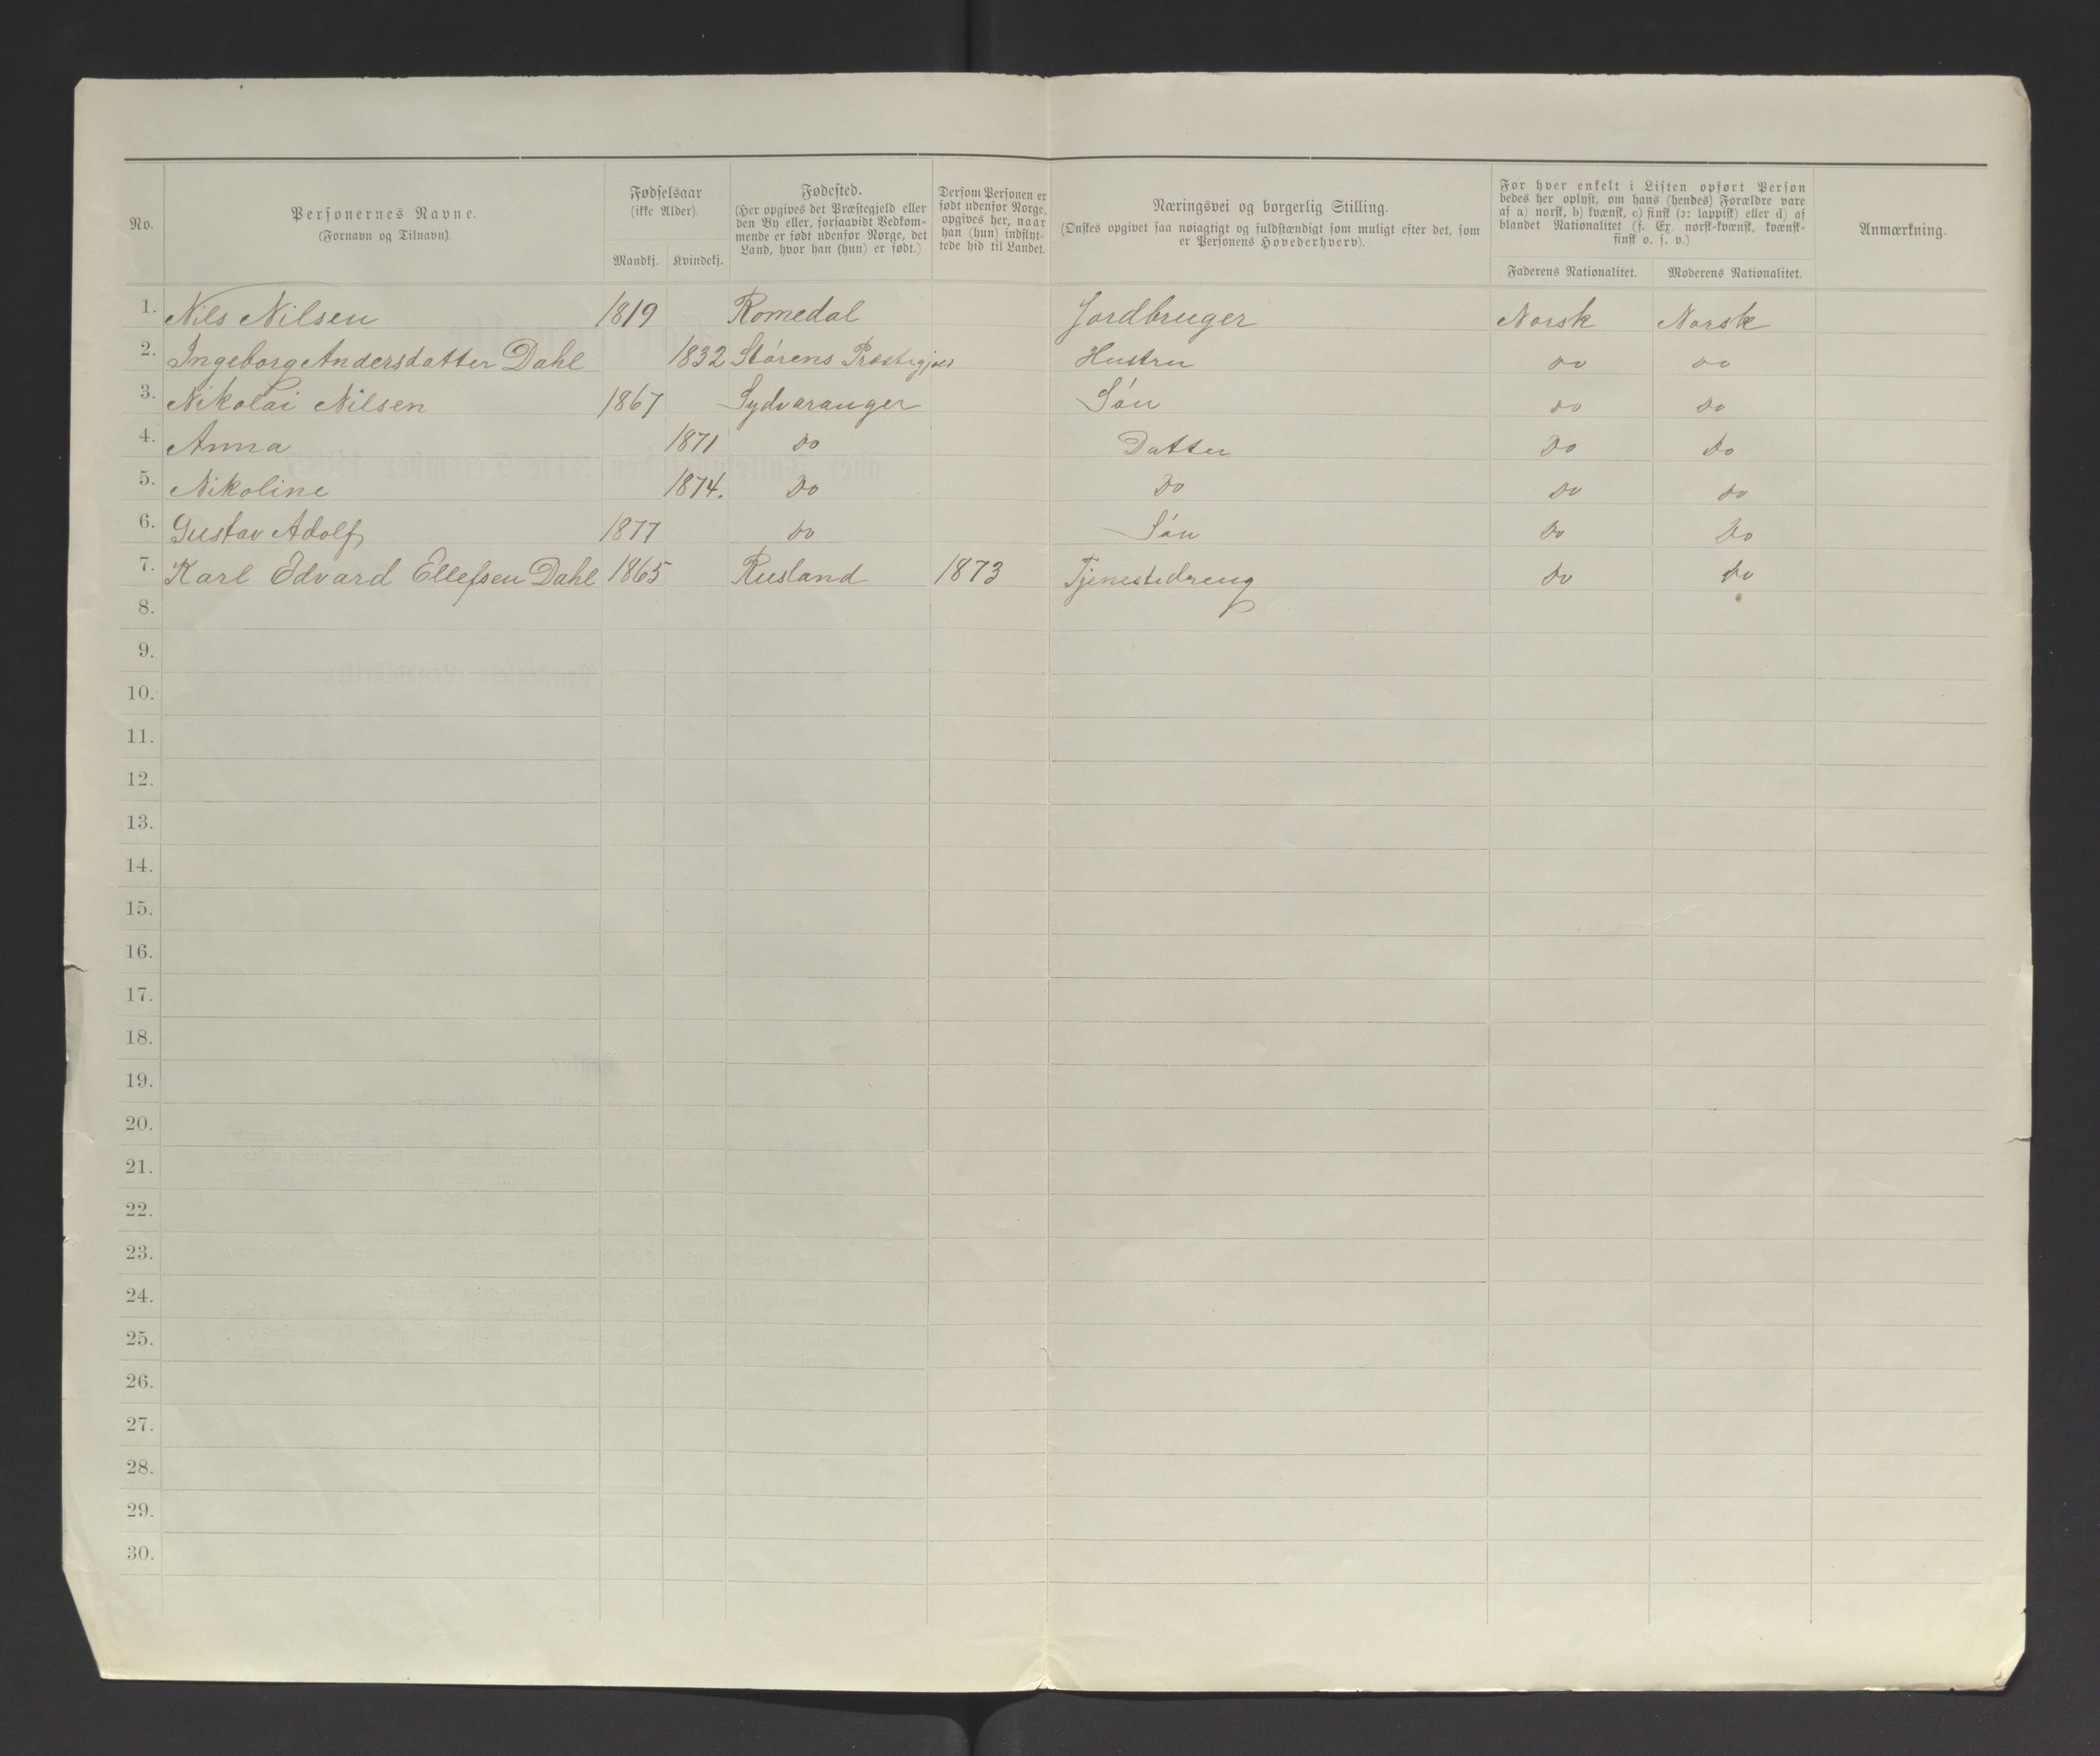 No.
Personernes Navne.
(Fornavn og Tilnavn).
Fødselsaar
(ikke Alder).
Mandkj. Kvindekj.
Fødested.
(Her opgives det Præstegjeld eller
den By eller, forsaavidt Vedkom-
mende er født udenfor Norge, det
Land, hvor han (hun) er født.)
Dersom Personen er
født udenfor Norge,
opgives her, naar
han (hun) indflyt-
tede hid til Landet.
Næringsvei og borgerlig Stilling.
(Ønskes opgivet saa nøiagtigt og fuldstændigt som muligt efter det, som
er Personens Hovederhverv).
For hver enkelt i Listen opført Person
bedes her oplyst, om hans (hendes) Forældre vare
af a) norsk, b) kvænsk, c) finsk (ɔ: lappisk) eller d) af
blandet Nationalitet (f. Ex. norsk-kvænsk, kvænsk-
finsk o. s. v.)
Faderens Nationalitet. Moderens Nationalitet.
Anmærkning.
1. Nils Nilsen 1819 Romedal Jordbruger Norsk Norsk
2. Ingeborg Andersdatter Dahl 1832 Störens Hustru do do
3. Nikolai Nilsen 1867 Sydvaranger Sön do do
4. Anna 1871 Do Datter Do Do
5. Nikoline 1874. Do Do Do Do
6. Gustav Adolf 1877 Do Sön Do Do
7. Karl Edvard Ellefsen Dahl 1865 Rusland 1873 Tjenestedreng Do Do
8.
9.
10.
11.
12.
13.
14.
15.
16.
17.
18.
19.
20.
21.
22.
23.
24.
25.
26.
27.
28.
29.
30.